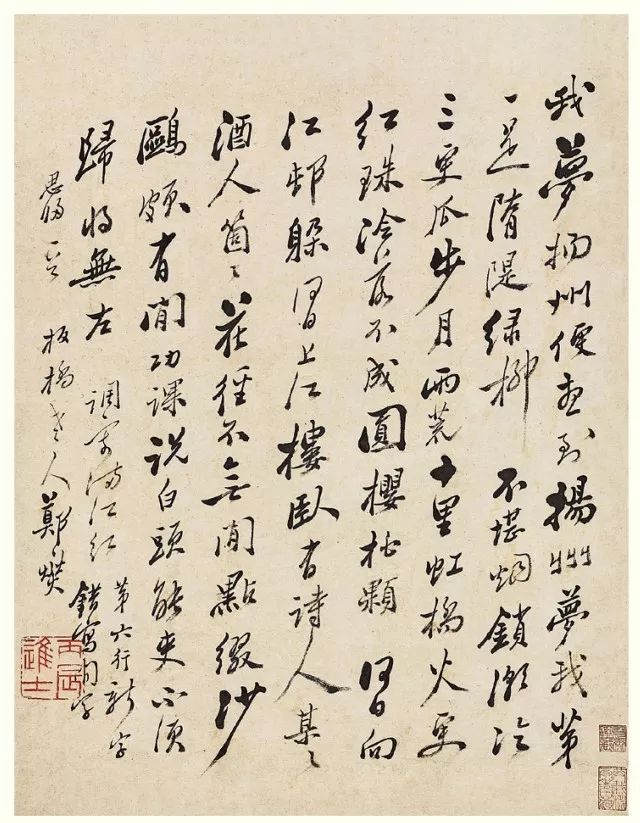 我夢揚州便想到揚州夢我第
一是隋隄綠柳不堪烟鎖潮冷
三更瓜步月雨荒十里虹橋火更
紅珠冷落不成圓櫻桃顆何日向
江邨躲何日上江樓臥有詩人某〻
酒人箇〻花徑不無閒點綴沙
鷗頗有閒功課説白頭能吏不須
歸將無左調寄滿江紅第六行新字
錯寫閒字
板橋老人鄭燮
丙辰進士